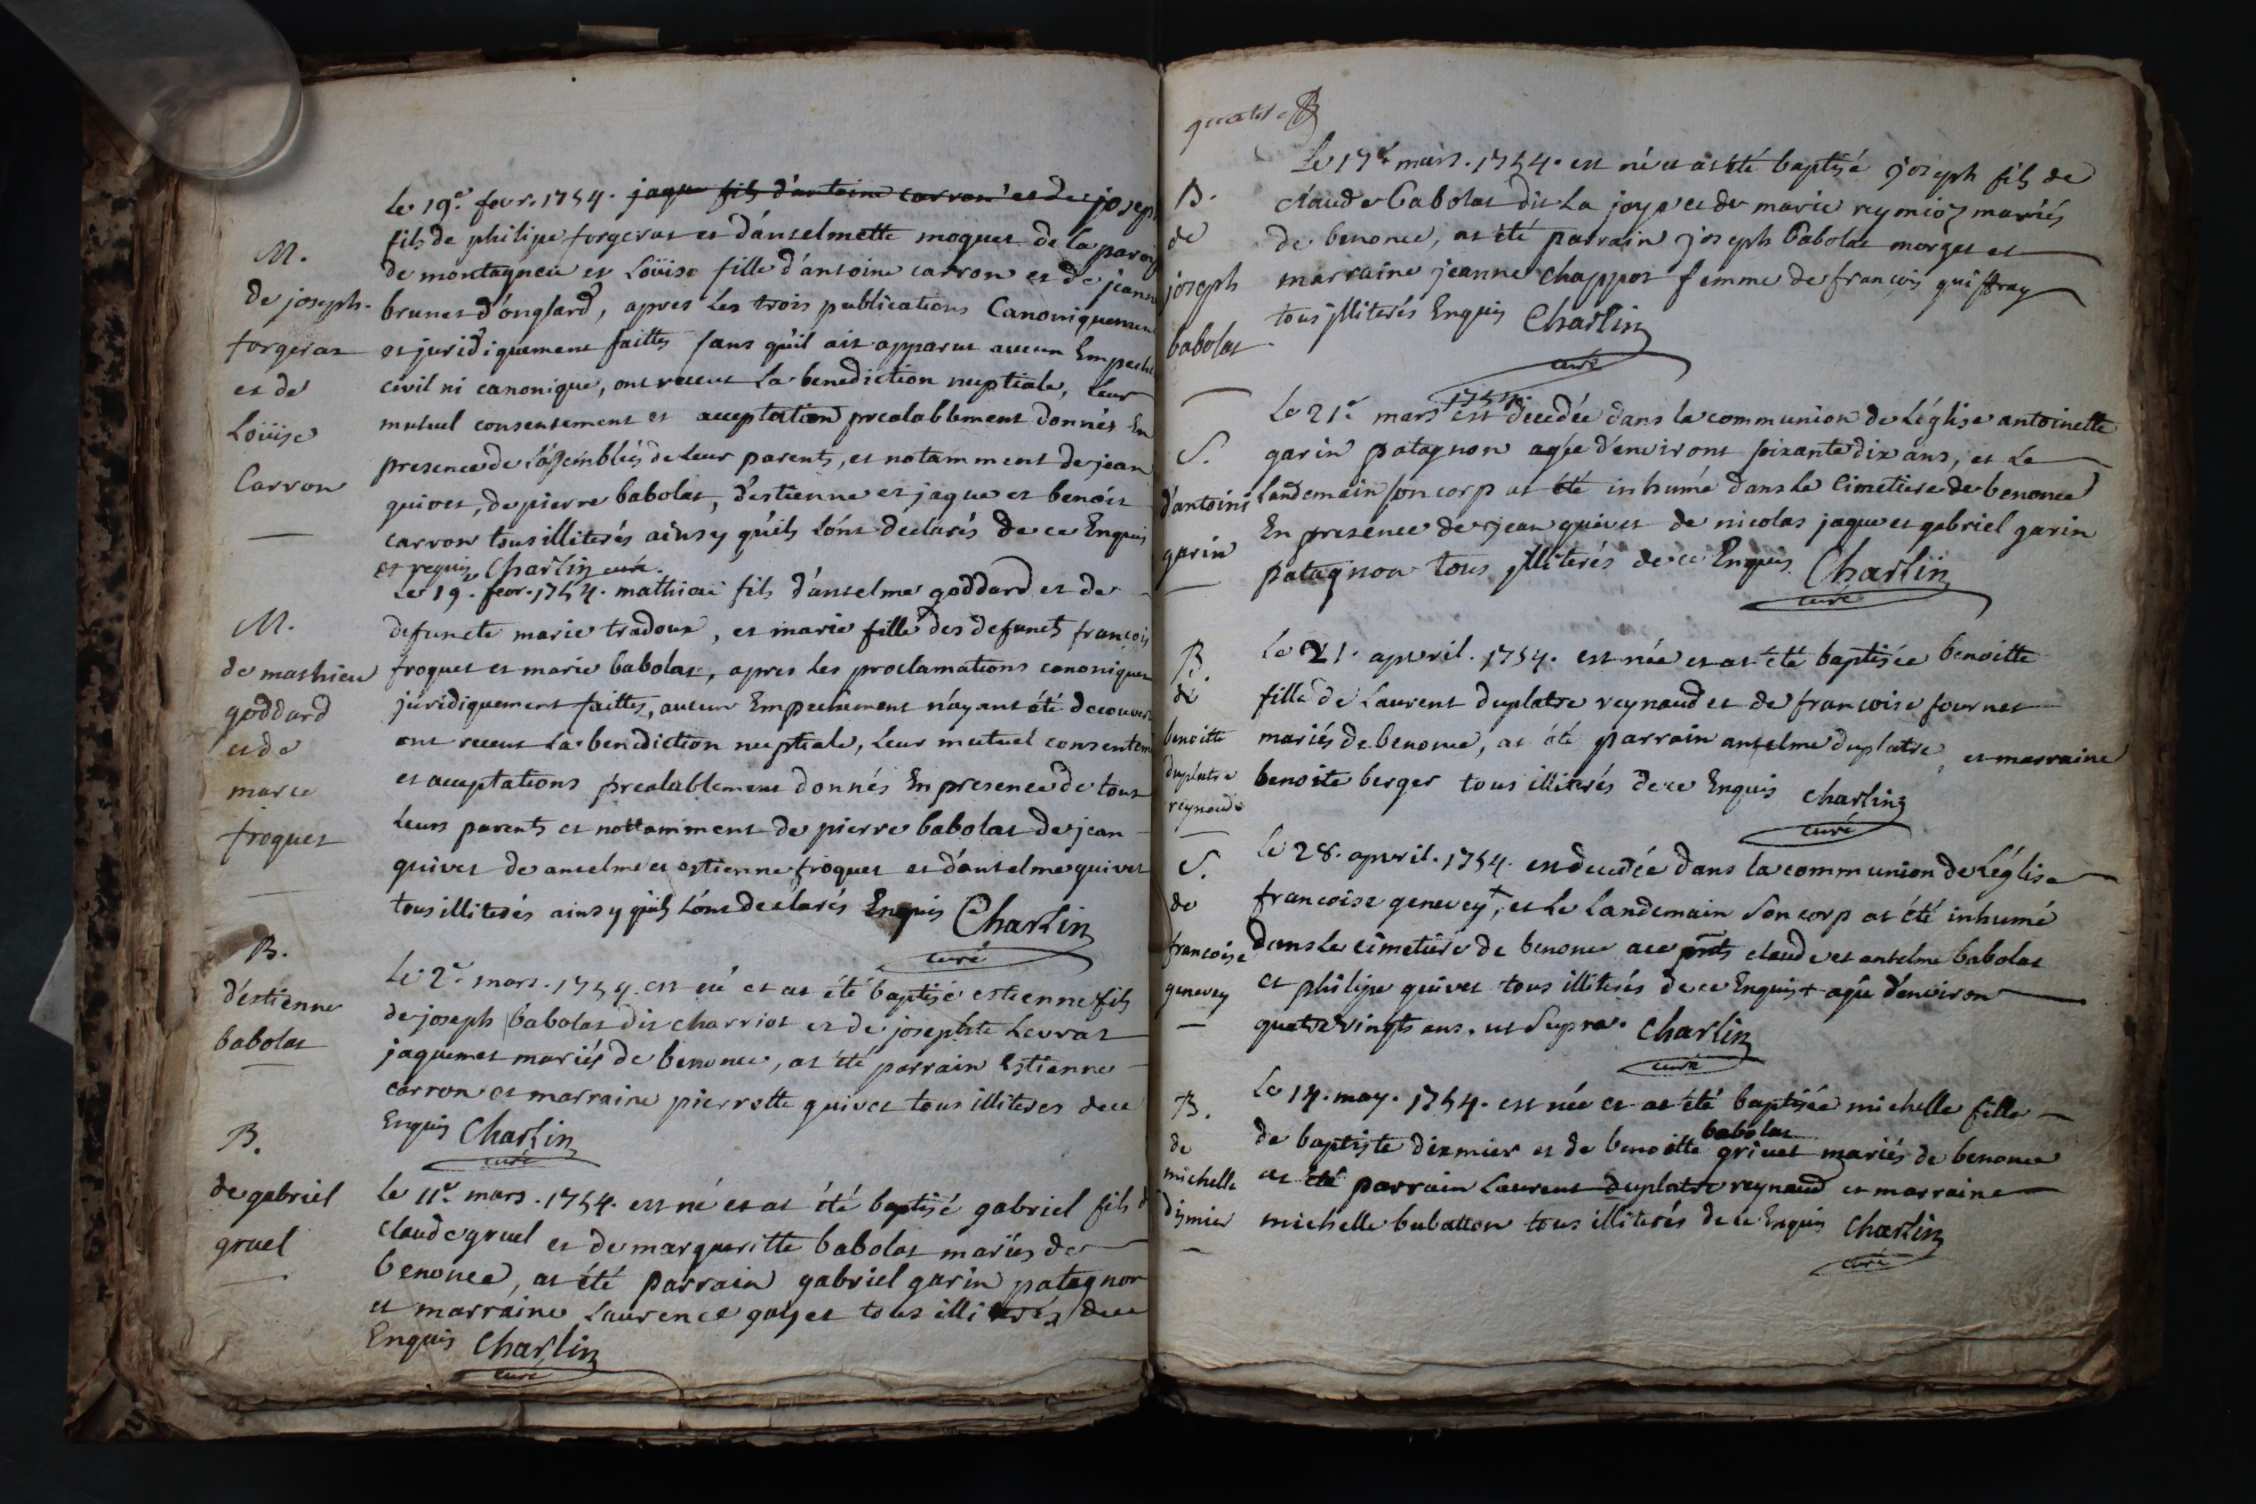 M.
de joseph
forgerat
et de
Loüise
Carron
le 19.e fevr. 1754. jaque fils d'antoine carron et de josep
fils de philipe forgerat et d'anselmette moquet de la paroi
de montagneu et Loüise fille d'antoine carron et de jeann
brunet d'onglard, apres les trois publications Canoniquemen
et juridiquement faittes sans qu'il ait apparut aucun Empeche
civil ni canonique, ont receut la benediction nuptiale, leur
mutuel consentement et acceptation prealablement donnés En
presence de l'assemblées de leur parents, et notamment de jean
quivet, de pierre babolat, d'estienne et jaque et benoit
carron tous illiterés ainsy qu'ils l'ont déclarés de ce Enquis
et requis Charlin curé.
M.
de mathieu
goddard
et de
marie
froquet
Le 19. fevr. 1754. mathieu fils d'anselme goddard et de
defuncte marie tradoux, et marie fille des defunts françois
froquet et marie babolat, apres les proclamations canoniques
juridiquement faittes, aucun Empechement n'ayant été decouver
ont receut la benediction nuptiale, leur mutuel consentem
et acceptations prealablement donnés En presence de tous
leurs parents et nottamment de pierre babolat de jean
quivet de anselme et estienne froquet et d'anselme quivet
tous illiterés ainsy qu'ils l'ont declarés Enquis Charlin
curé
B.
d'estienne
babolat
le 2.e mars. 1754. est né et at été baptisé estienne fils
de joseph babolat dit charriot et de josephte Levrat
jaquemet mariés de benonce, at été parrain Estienne
carron et marraine pierrette quivet tous illiteres de ce
Enquis Charlin
curé
B.
de gabriel
gruel
le 11.e mars. 1754. est né et at été baptisé gabriel fils d
claude gruel et de margueritte babolat mariés de
benonce, at été parrain gabriel garin patagnon
et marraine Laurence goyet tous illiterés de ce
Enquis Charlin
curé
quatre
B.
de
joseph
babolat
Le 17.e mars. 1754. est né et at été baptisé joseph fils de
claude babolat dit La joye et de marie reymioz mariés
de benonce, at été parrain joseph babolat morget et
marraine jeanne chappot femme de françois quiffray
tous illiterés Enquis Charlin
curé
S.
d'antoine
garin
1754.
Le 21.e mars est decedée dans la communion de L'église antoinette
garin patagnon agée d'environt soixante dix ans, et Le
Landemain son corp at été inhumé dans le Cimetiere de benonce
En presence de jean quivet de nicolas jaque et gabriel garin
patagnon tous illiterés de ce Enquis Charlin
curé
B.
de
benoitte
duplatre
reynaud
Le 21. apvril. 1754. est née et at été baptisée benoitte
fille de Laurent duplatre reynaud et de francoise fournet
mariés de benonce, at été parrain anselme duplatre, et marraine
benoite berger tous illiterés de ce Enquis Charlin
curé
S.
de
francoise
genevey
le 28. apvril. 1754. est decedée dans la communion de L'église
francoise genevey +, et Le Landemain Son corp at été inhumé
dans Le cimetiere de benonce ace pnts claude et anselme babolat
et philipe quivet tous illiterés de ce Enquis + agée d'environ
quatrevingts ans. ut Supra. Charlin
curé
B.
de
michelle
dizmier
Le 14. may. 1754. est née et at été baptisée michelle fille
babolat
de baptiste dizmier et de benoitte grivet mariés de benonce
at été parrain Laurent duplatre reynaud et marraine
michelle babatton tous illiterés de ce Enquis Charlin
curé